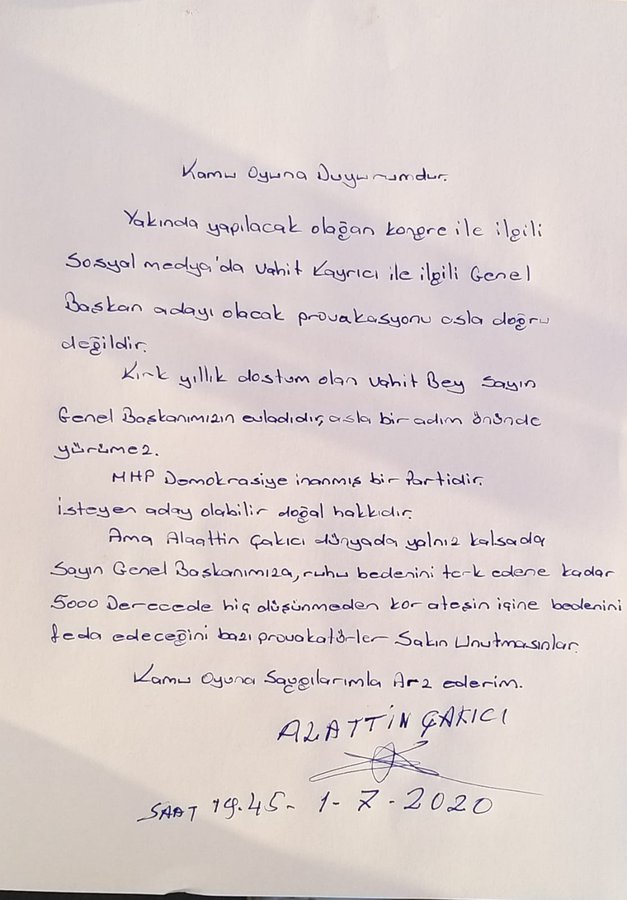 Kamu Oyuna Duyurumdur.
Yakında yapılacak olağan kongre ile ilgili
Sosyal medya'da Vahit Kayrıcı ile ilgili Genel
Başkan adayı olacak provakasyonu asla doğru
değildir.
Kırk yıllık dostum olan Vahit Bey Sayın
Genel Başkanımızın evladıdır, asla bir adım önünde
yürümez.
MHP Demokrasiye inanmış bir Partidir.
İsteyen aday olabilir doğal hakkıdır.
Ama Alaattin Çakıcı dünyada yalnız kalsada
Sayın Genel Başkanımıza, ruhu bedenini terk edene kadar
5000 Derecede hiç düşünmeden kor ateşin içine bedenini
feda edeceğini bazı provakatörler Sakın Unutmasınlar.
Kamu Oyuna Saygılarımla Arz ederim.
ALATTİN ÇAKICI
SAAT 19.45- 1-7-2020